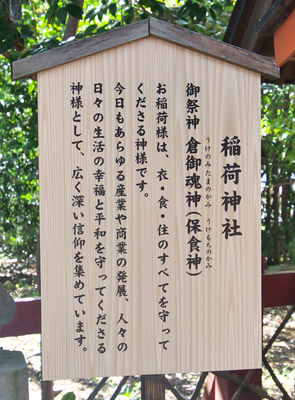 稲荷神社
御祭神 倉御魂神(保食神)
うけのみたまのかみ うけもちのかみ
お稲荷様は、衣・食・住のすべてを守って
くださる神様です。
今日もあらゆる産業や商業の発展、人々の
日々の生活の幸福と平和を守ってくださる
神様として、広く深い信仰を集めています。